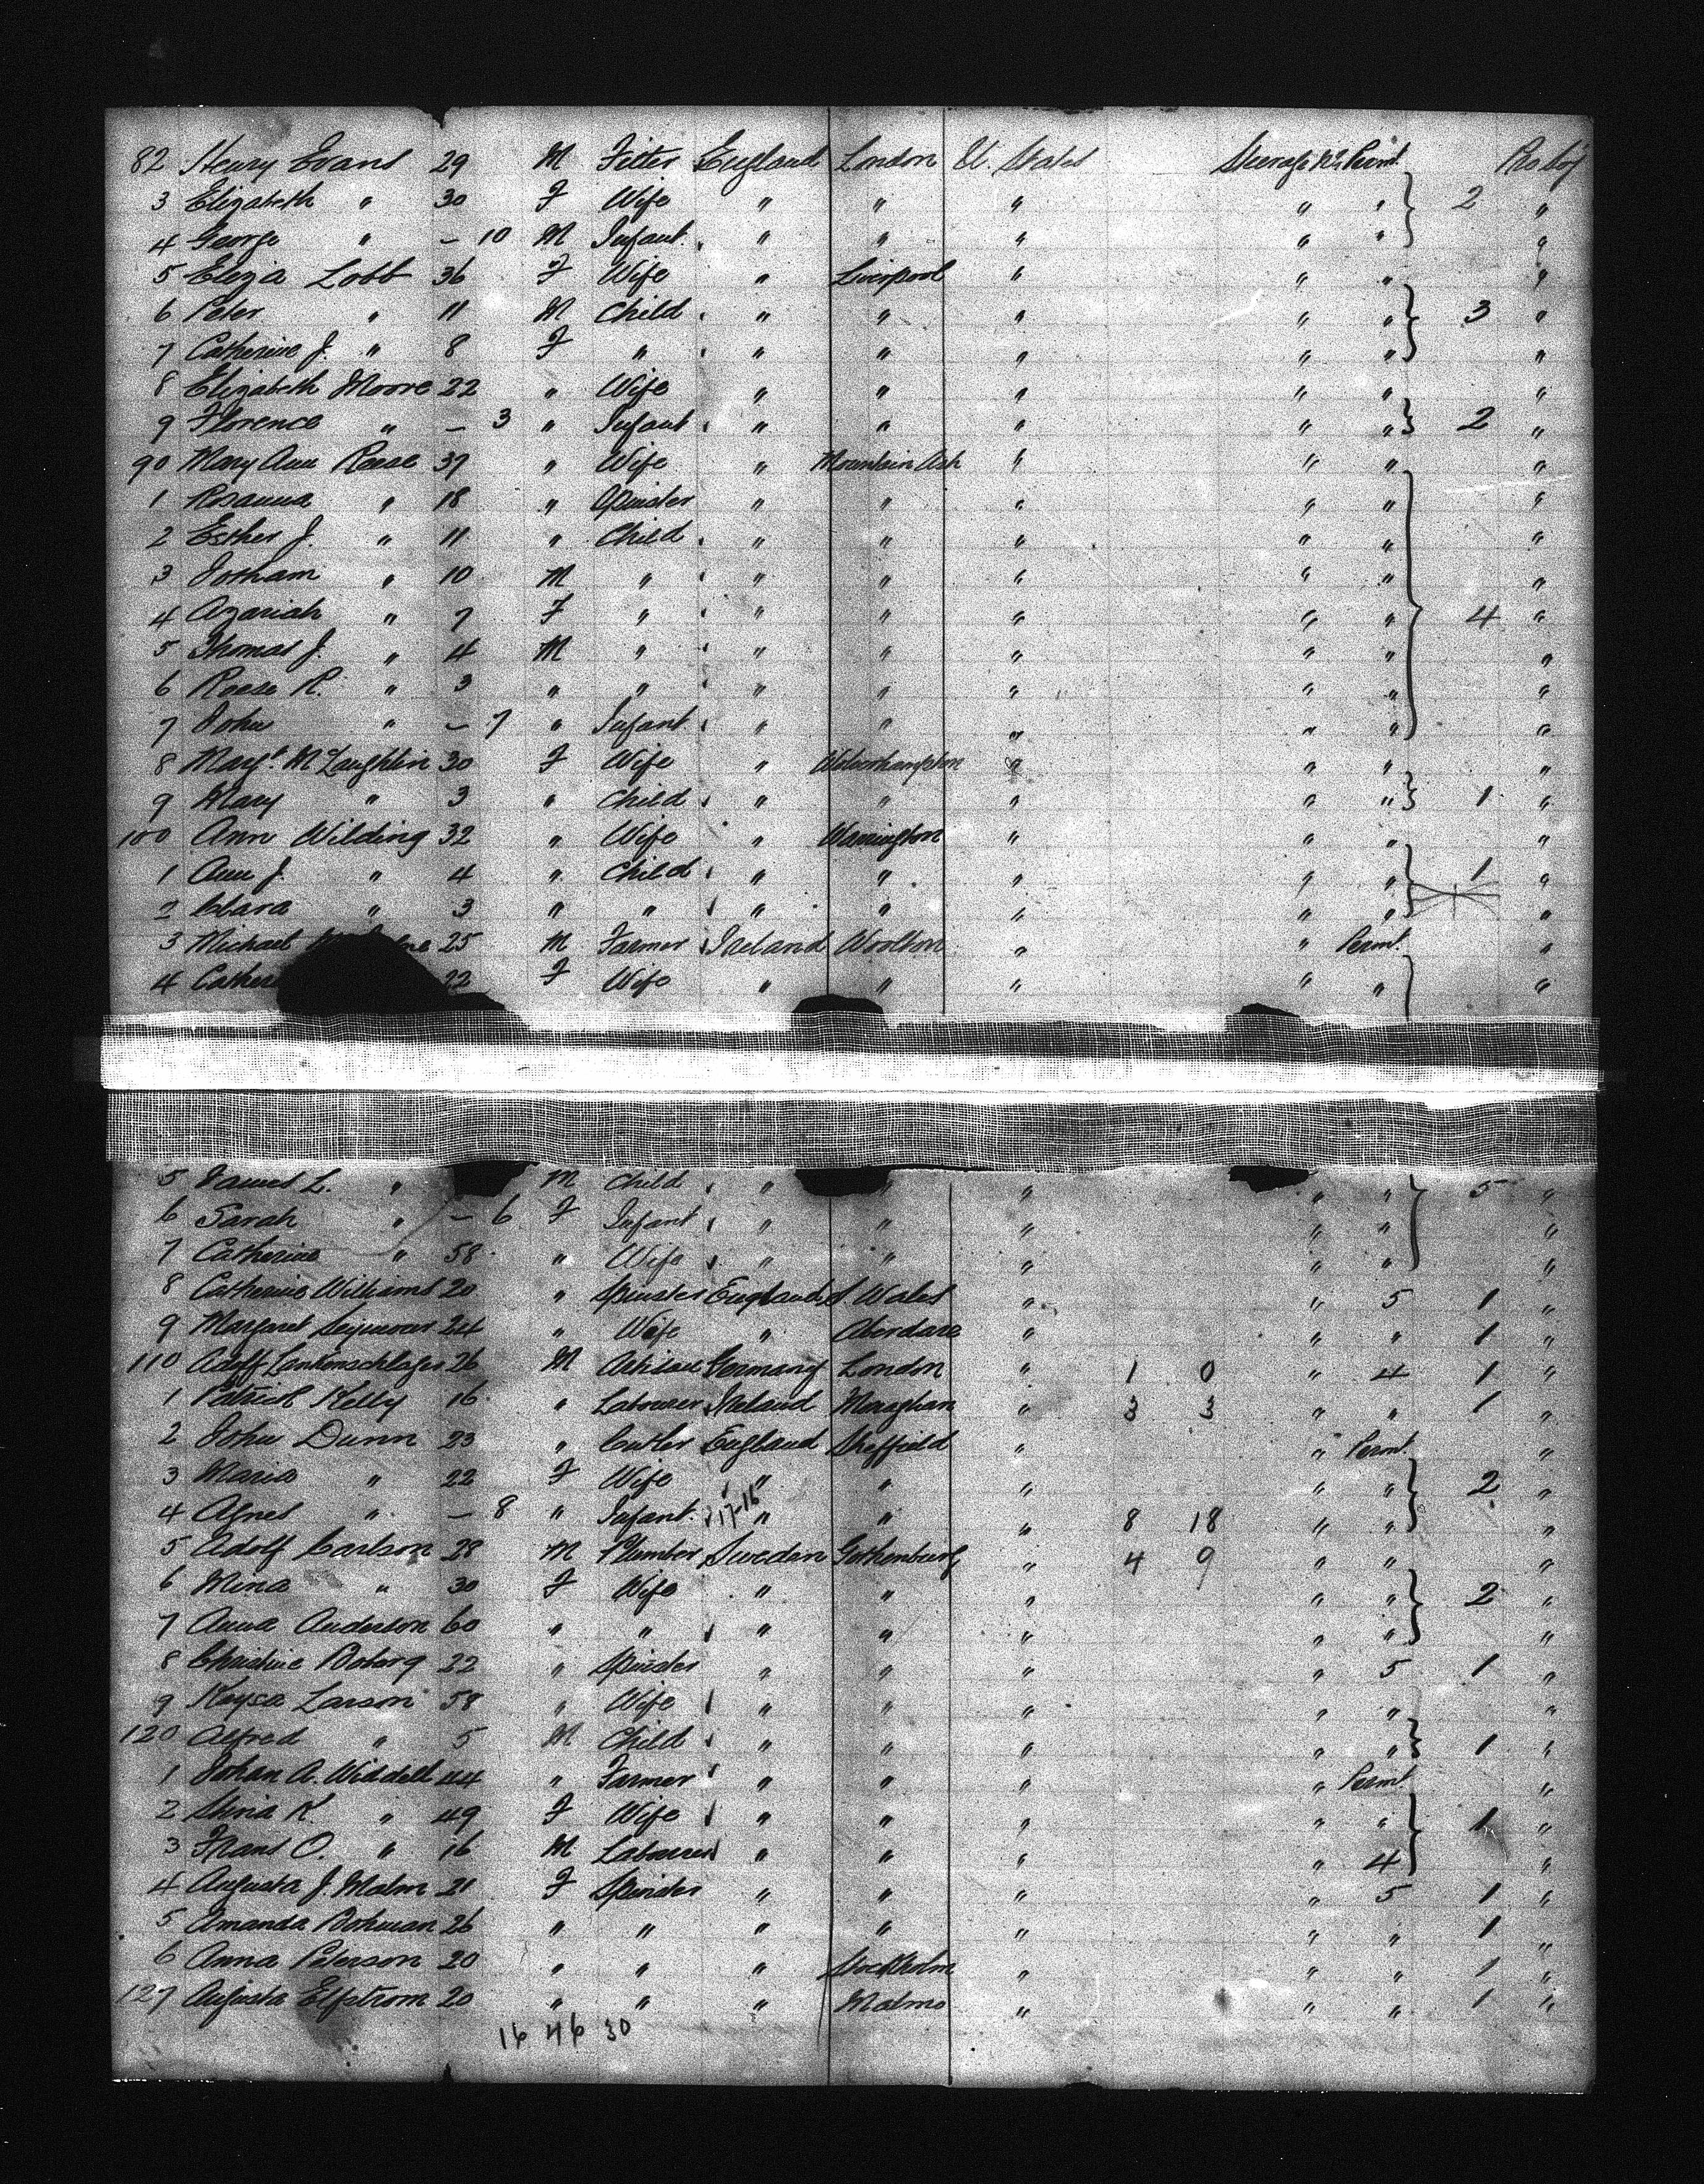 82 Henry Evans 29 M Fitter England London U. States Steerage Perm't Pro tog
3 Elizabeth " 30 F Wife " " " " " 2 "
4 George " – 10 M Infant " " " " " "
5 Eliza Lobb 36 F Wife " Liverpool " " " "
6 Peter " 11 M Child " " " " " 3 "
7 Catherine J. " 8 F " " " " " " "
8 Elizabeth Moore 22 " Wife " " " " " "
9 Florence " – 3 " Infant " " " " " 2 "
90 Mary Ann Reese 37 " Wife " Mountain Ash " " " "
1 Rosanna " 18 " Spinster " " " " " "
2 Esther J. " 11 " Child " " " " " "
3 Jotham " 10 M " " " " " " "
4 Azariah " 7 F " " " " " " 4 "
5 Thomas J. " 4 M " " " " " " "
6 Reese R. " 3 " " " " " " " "
7 John " – 7 " Infant " " " " " "
8 Margt. McLaughlin 30 F Wife " Wolverhampton " " " "
9 Mary " 3 " Child " " " " " 1 "
100 Ann Wilding 32 " Wife " Warrington " " " "
1 Ann J. " 4 " Child " " " " " 1 "
2 Clara " 3 " " " " " " " "
3 Michael 25 M Farmer Ireland Woolton " " Permt. "
4 Cather 22 F Wife " " " " " "
5 James L. " M Child " " " " " 5 "
6 Sarah " – 6 F Infant " " " " " "
7 Catherine " 58 " Wife " " " " " "
8 Catherine Williams 20 " Spinster England S. Wales " " 5 1 "
9 Margaret 24 " Wife " Aberdare " " " 1 "
110 Adolf Lankenschlager 26 M Artisan Germany London " 1 0 " 4 1 "
1 Patrick Kelly 16 " Labourer Ireland Monaghan " 3 3 " " 1 "
2 John Dunn 23 " Cutler England Sheffield " " Permt. "
3 Maria " 22 F Wife " " " " " 2 "
4 Agnes " – 8 " Infant 17-16 " " " 8 18 " " "
5 Adolf Carlson 28 M Plumber Sweden Gothenburg " 4 9 " " "
6 Mina " 30 F Wife " " " " " 2 "
7 Anna Anderson 60 " " " " " " " "
8 Christine Boberg 22 " Spinster " " " " 5 1 "
9 Kaysa Larson 58 " Wife " " " " " "
120 Alfred " 5 M Child " " " " " 1 "
1 Johan A. Widdell 44 " Farmer " " " " Permt. "
2 Stina K. " 49 F Wife " " " " " 1 "
3 Frans O. " 16 M Labourer " " " " 4 "
4 Augusta J. Malm 21 F Spinster " " " " 5 1 "
5 Amanda Bohman 26 " " " " " " " 1 "
6 Anna Peterson 20 " " " Stockholm " " " 1 "
127 Augusta Elfstrom 20 " " " Malmo " " " 1 "
16 46 30